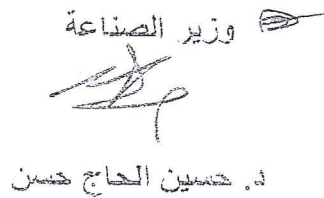 وزير الصناعة
د. حسين الحاج حسن